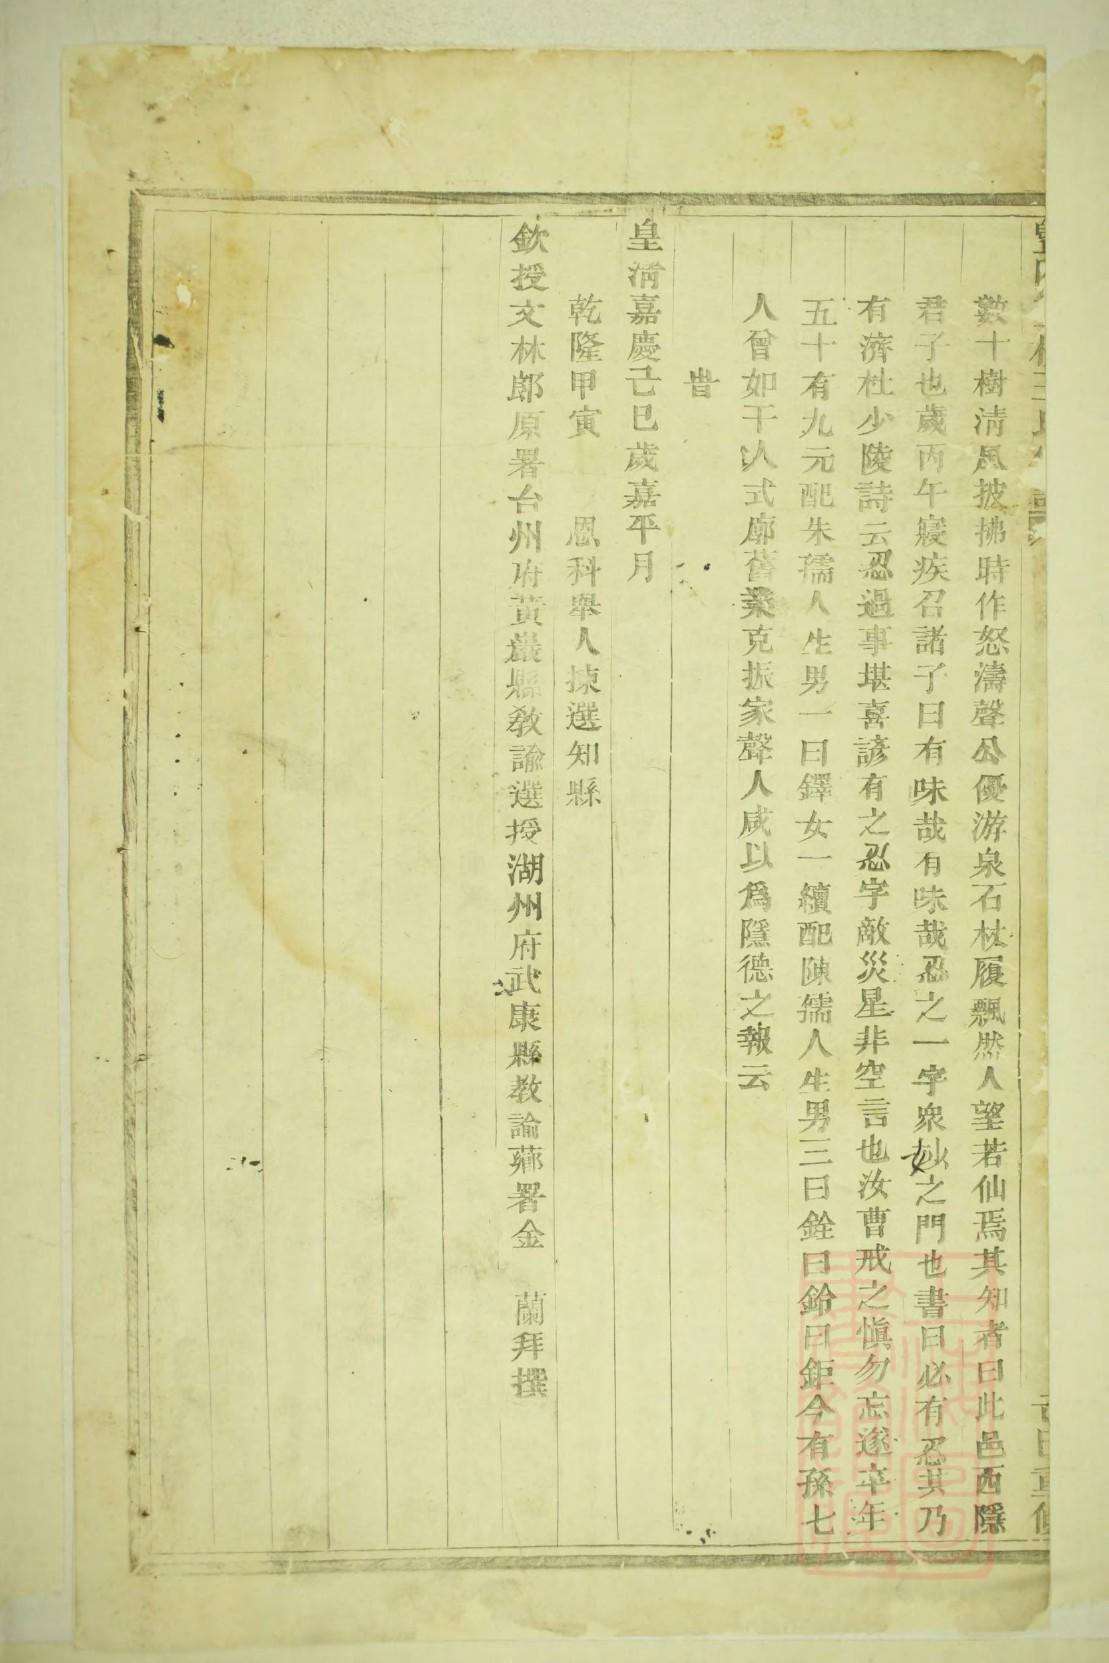 數十樹清風披拂時作怒濤聲公優游泉石杖履飄然人望若仙焉其知者曰此邑西隱
君子也歲丙午寢疾召諸子曰有味哉有味哉忍之一字衆妙之門也書曰必有忍其乃
有濟杜少陵詩云忍過事堪喜諺有之忍字敵災星非空言也汝曹戒之愼勿忘遂卒年
五十有九元配朱孺人生男一曰鐸女一續配陳孺人生男三曰銓曰鈴曰鉅今有孫七
人曾如干人式廓舊業克振家聲人咸以爲隱德之報云
旹
皇清嘉慶己巳歲嘉平月
乾隆甲寅 恩科舉人揀選知縣
欽授文林郎原署台州府黃巖縣教諭選授湖州府武康縣教諭薌署金 蘭拜撰